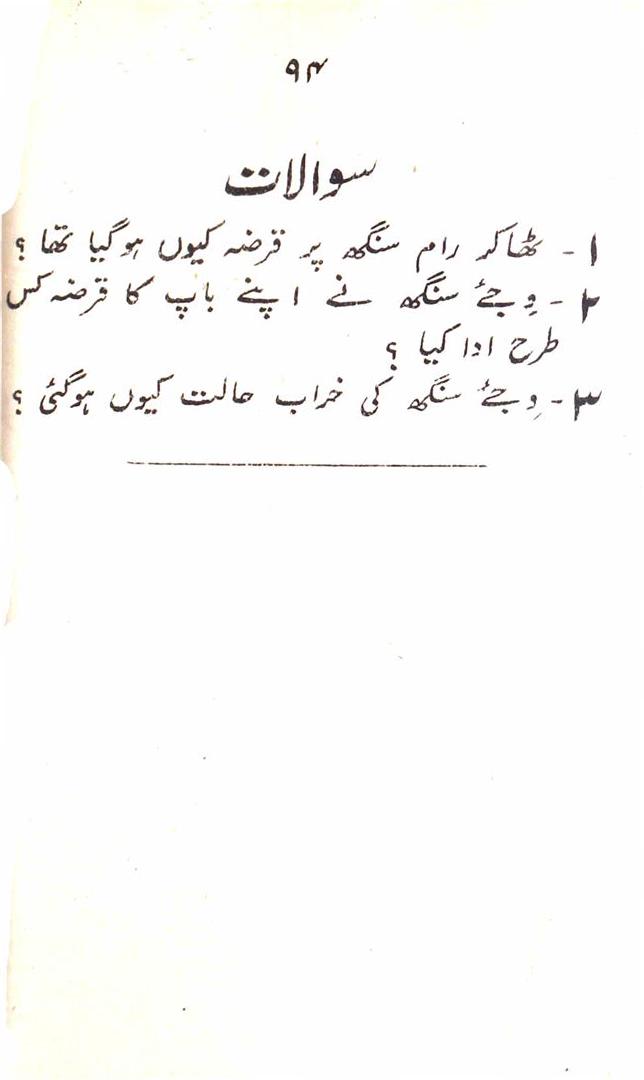 ۹۴
سوالات
۱ - ٹھاکر رام سنگھ پر قرضہ کیوں ہوگیا تھا ؟
۲ - وِجئے سنگھ نے اپنے باپ کا قرضہ کس
طرح ادا کیا ؟
۳ - وِجئے سنگھ کی خراب حالت کیوں ہوگئی ؟